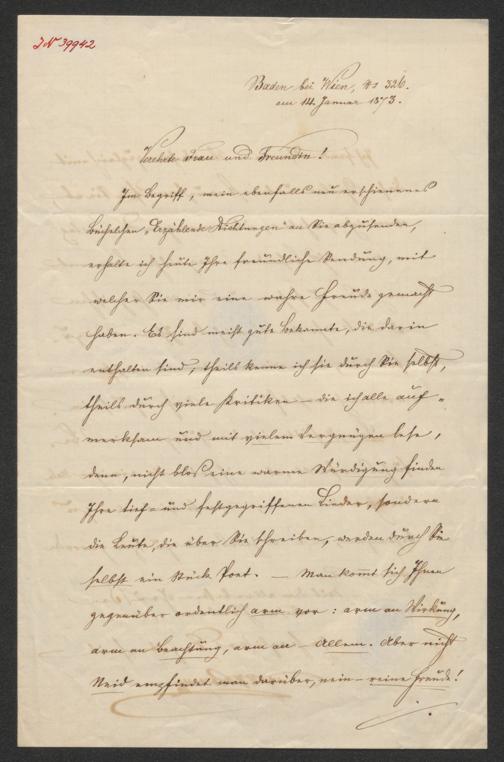 JN 39942
Baden bei Wien, No 326.
am 14. Januar 1873.
Verehrte Frau und Freundin!
Im Begriff, mein ebenfalls neu erschienenes
Büchelchen „Erzählende Dichtungen" an Sie abzusenden,
erhalte ich heute Ihre freundliche Sendung, mit
welcher Sie mir eine wahre Freude gemacht
haben. Es sind meist gute Bekannte, die darin
enthalten sind; theils kenne ich sie durch Sie selbst,
theils durch viele Kritiken – die ich alle auf-
merksam und mit vielem Vergnügen lese,
denn, nicht blos eine warme Würdigung finden
Ihre tief- und festgegriffenen Lieder, sondern
die Leute, die über Sie schreiben, werden durch Sie
selbst ein Stück Poet. – Man kom̅t sich Ihnen
gegenüber ordentlich arm vor: arm an Wirkung,
arm an Beachtung, arm an – Allem. Aber nicht
Neid empfindet man darüber, nein – reine Freude!